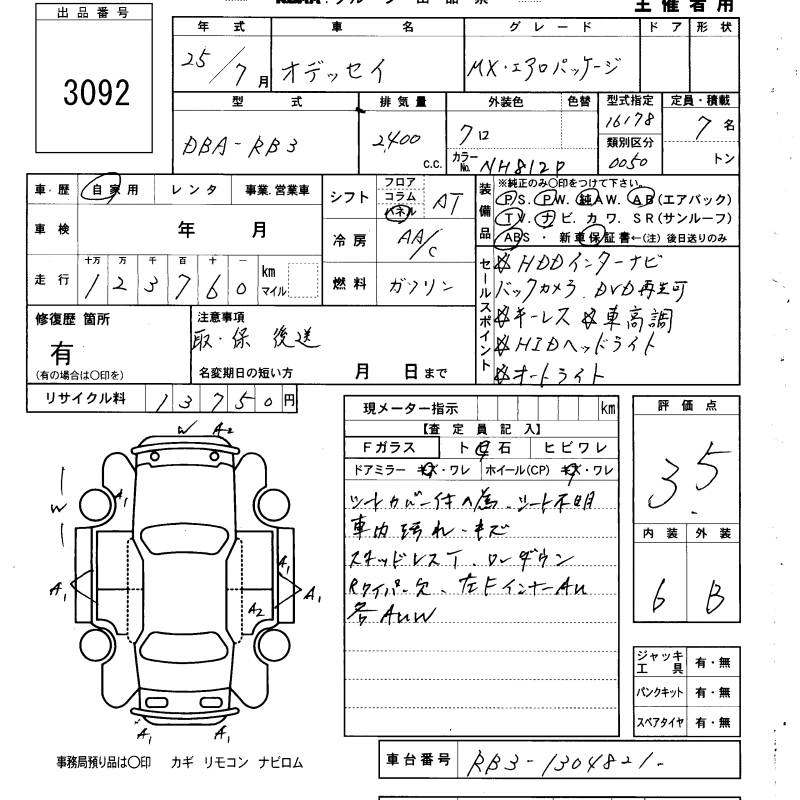 主催者用
出品番号
3092
年式 車名 グレード ドア 形状
25/7月 オデッセイ MX・エアロパッケージ
型式 排気量 外装色 色替 型式指定 定員・積載
DBA-RB3 2,400 c.c. クロ 16178 7名
カラーNo. NH812P 類別区分 0050 トン
車・歴 自家用 レンタ 事業.営業車
車検 年 月
走行 十万 万 千 百 十 一 km マイル
1 2 3 7 6 0
シフト フロア コラム パネル AT
冷房 AA/C
燃料 ガソリン
装備品 ※純正のみ○印をつけて下さい。
PS. PW. 純AW. AB(エアバック)
TV. ナビ. カワ. SR(サンルーフ)
ABS ・ 新車保証書←(注) 後日送りのみ
セールスポイント
☆HDDインターナビ
バックカメラ. DVD再生可
☆キーレス ☆車高調
☆HIDヘッドライト
☆オートライト
修復歴 箇所
有
(有の場合は○印を)
注意事項
取・保 後送
名変期日の短い方 月 日まで
リサイクル料 13750円
現メーター指示 km
【査定員記入】
Fガラス ト飛石 ヒビワレ
ドアミラー キズ・ワレ ホイール(CP) キズ・ワレ
シートカバー付の為. シート不明
車内汚れ・キズ
スタッドレスT. ローダウン
Rワイパー欠. 左FインナーAu
各AuW
評価点
3.5
内装 外装
6 B
ジャッキ工具 有・無
パンクキット 有・無
スペアタイヤ 有・無
W A2
W A1
A1 A1 A1
A2
A1 A1
事務局預り品は○印 カギ リモコン ナビロム
車台番号 RB3-1304821-